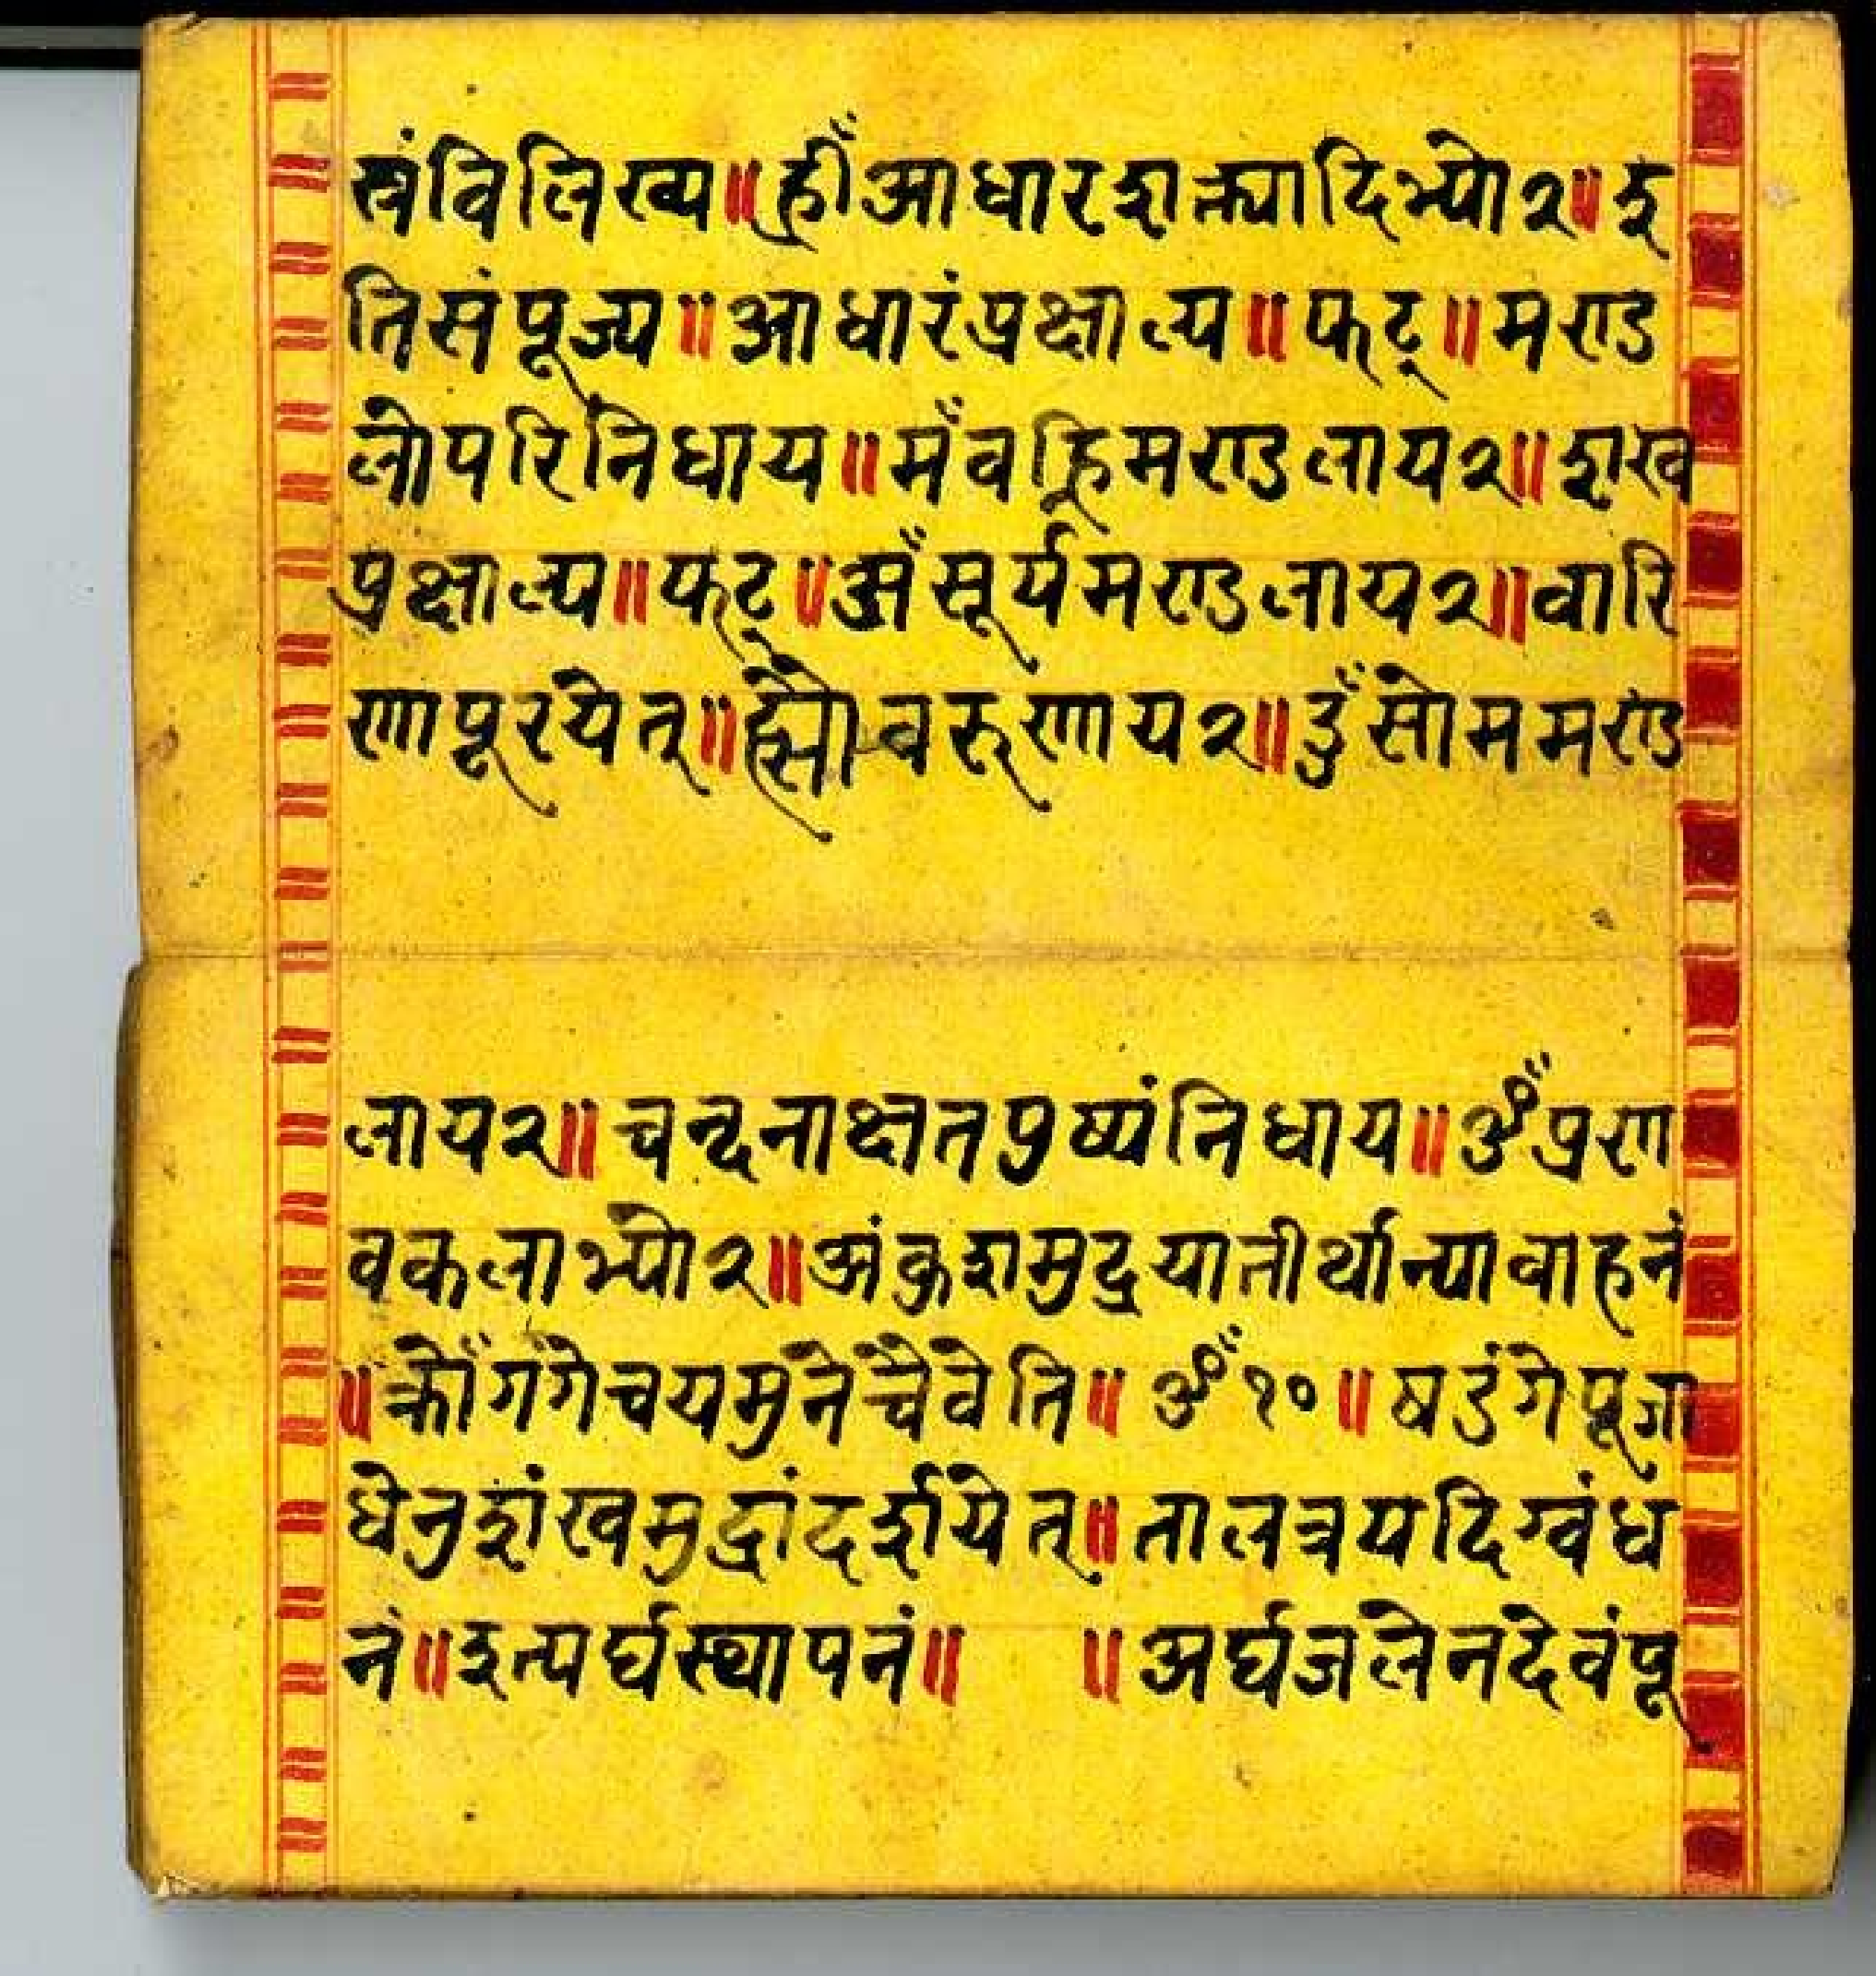 स्रंविलिख्य॥ह्रीँआधारशक्त्यादिभ्यो२॥इ
तिसंपूज्य॥आधारंप्रक्षाल्य॥फट्॥मण्ड
लोपरिनिधाय॥मँवह्निमण्डलाय२॥शख
प्रक्षाल्य॥फट्॥अँसूर्यमण्डलाय२॥वारि
णापूरयेत्॥ह्सौवरुणाय२॥उँसोममण्ड
लाय२॥चन्दनाक्षतपुष्पंनिधाय॥ॐप्रण
वकलाभ्यो२॥अंकुशमुद्रयातीर्थान्यावाहनं
॥क्रोँगंगेचयमुनेचैवेति॥ॐ१०॥षडंगेपूजा
धेनुशंखमुद्रांदर्शयेत्॥तालत्रयदिग्वंध
नं॥इत्यर्घस्थापनं॥ ॥अर्घजलेनदेवंपू